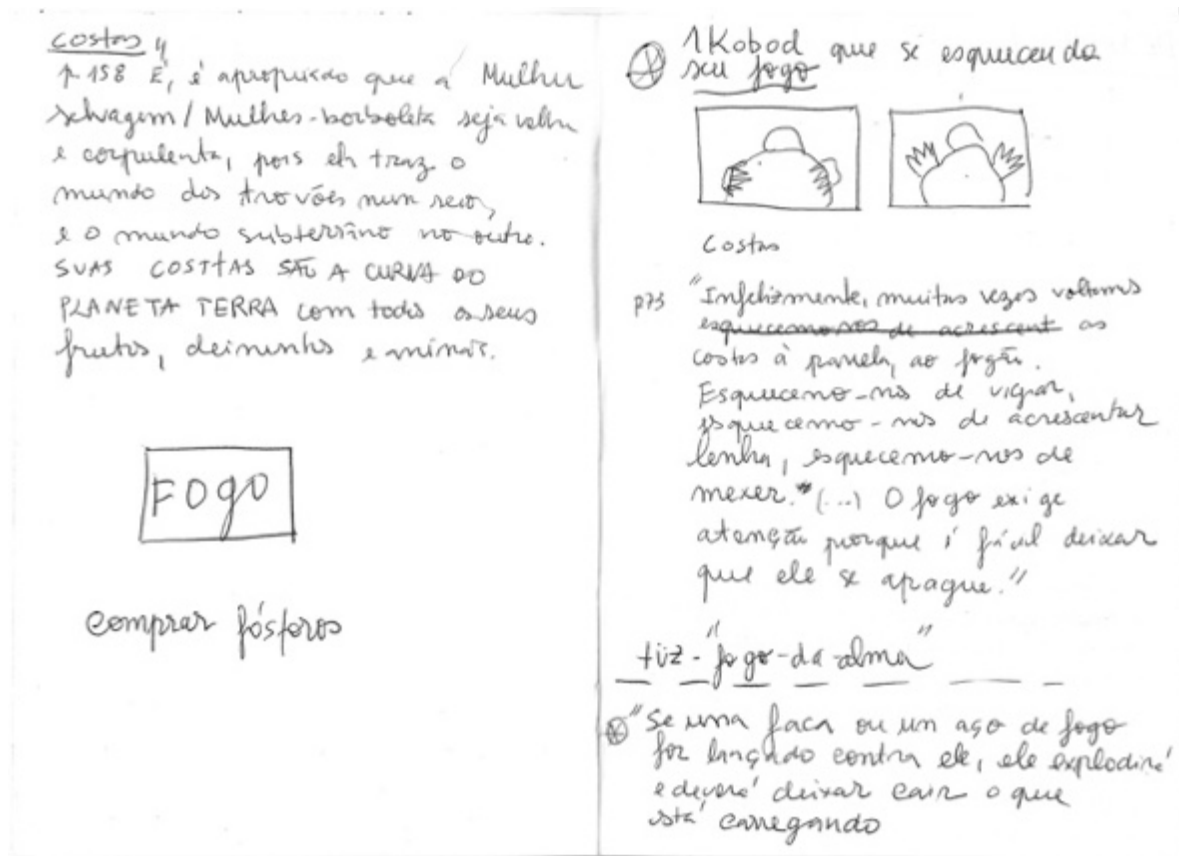 costas
p. 158 "É, é apropriado que a Mulher
selvagem / Mulher-borboleta seja velha
e corpulenta, pois ela traz o
mundo dos trovões num seio,
e o mundo subterrâneo no outro.
SUAS COSTAS SÃO A CURVA DO
PLANETA TERRA com todos os seus
frutos, e animais.
FOGO
comprar fósforos
1 Kobod que se esqueceu do
seu fogo
Costas
p73 "Infelizmente, muitas vezes voltamos
esquecemo-nos de acrescent as
costas à panela, ao fogão.
Esquecemo-nos de vigiar,
esquecemo-nos de acrescentar
lenha, esquecemo-nos de
mexer." (...) O fogo exige
atenção porque é fácil deixar
que ele se apague."
tüz - "fogo-da-alma"
"Se uma faca ou um aço de fogo
for lançado contra ele, ele explodirá
e deverá deixar cair o que
está carregando